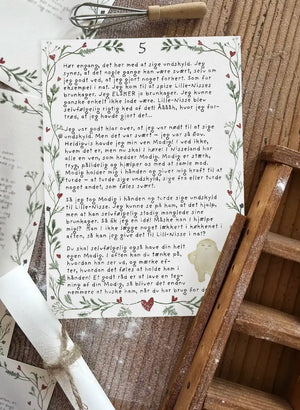 5
Hør engang, det her med at sige undskyld. Jeg
synes, at det nogle gange kan være svært, selv om
jeg godt ved, at jeg gjort noget forkert. Som for
eksempel i nat. Jeg kom til at spise Lille-Nisses
brunkager. Jeg ELSKER jo brunkager. Jeg kunne
ganske enkelt ikke lade være. Lille-Nisse blev
selvfølgelig rigtig ked af det! Åååhh, hvor jeg for-
trød, at jeg havde gjort det...
Jeg var godt klar over, at jeg var nødt til at sige
undskyld. Men det var svært – jeg var så flov.
Heldigvis havde jeg min ven Modig! I ved ikke,
hvem det er, men nu skal I høre! I Nisseland har
alle en ven, som hedder Modig. Modig er stærk,
tryg, pålidelig og hjælper os med at samle mod.
Modig holder mig i hånden og giver mig kraft til at
turde – at turde sige undskyld, sige fra eller turde
noget andet, som føles svært.
Så jeg tog Modig i hånden og turde sige undskyld
til Lille-Nisse. Jeg kunne se på ham, at det hjalp,
men at han selvfølgelig stadig manglede sine
brunkager. Så fik jeg en idé! Måske kan I hjælpe
mig!? Kan I ikke lægge noget lækkert i køkkenet i
aften, så kan jeg give det til Lille-Nisse i nat?
Du skal selvfølgelig også have din helt
egen Modig. I aften kan du tænke på,
hvordan han ser ud, og mærke ef-
ter, hvordan det føles at holde ham i
hånden! Et godt råd er at lave en teg-
ning af din Modig, så bliver det endnu
nemmere at huske ham, når du har brug for